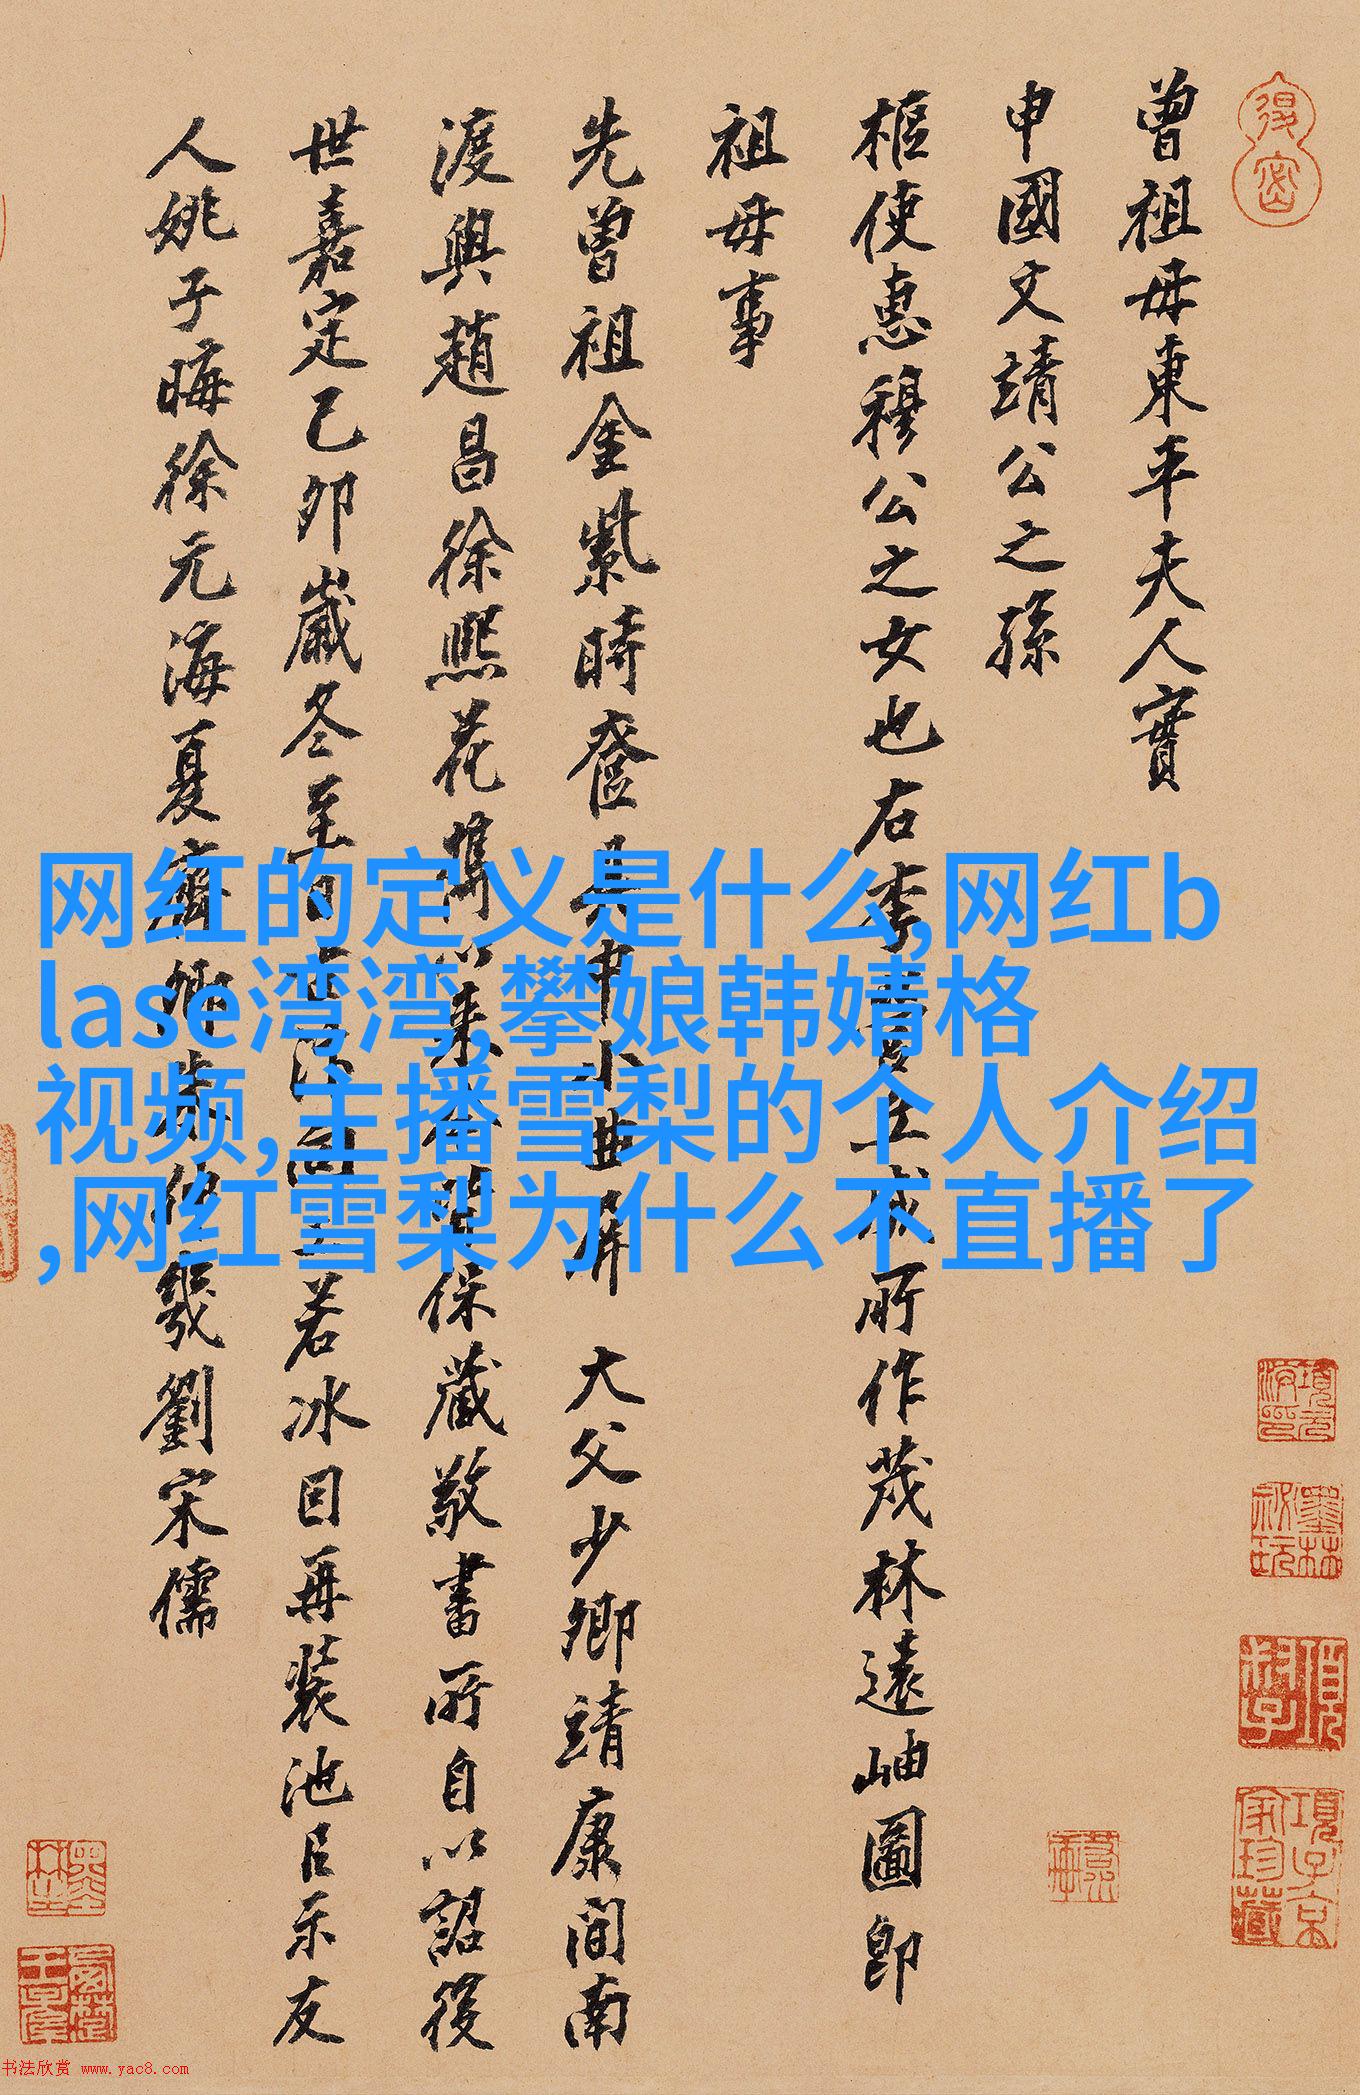 曾祖母東平夫人實
申國文靖公之孫
樞使惠穆公之女也右李營丘咸所作茂林遠岫圖即
祖母事
先曾祖金紫時奩具中小曲屏 大父少卿靖康間南
渡與趙昌徐熙花雋以来金保藏敬書所自以詔後
世嘉定己卯歲冬至日若冰因再裝池呂示友
人姚子晦徐元海夏齊卿幾劉宋儒
网红的定义是什么,网红b
lase湾湾,攀娘韩婧格
视频,主播雪梨的个人介绍
,网红雪梨为什么不直播了
书法欣赏 www.yac8.com